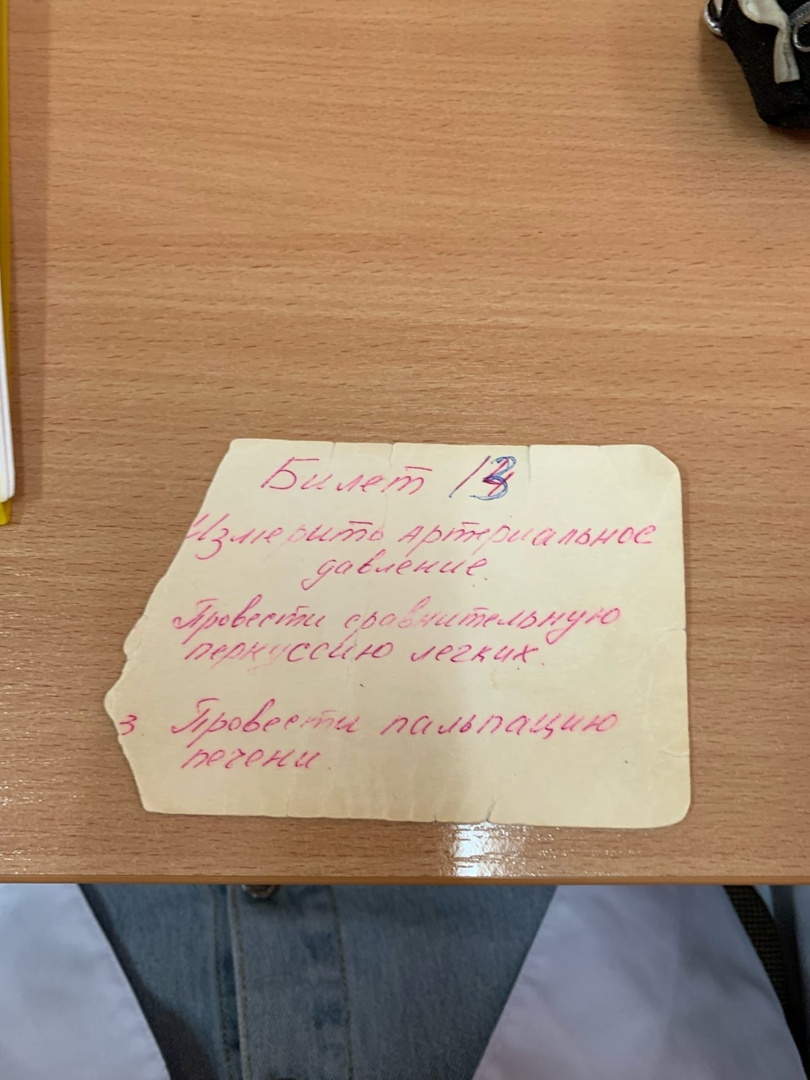 Билет 13
Измерить артериальное
давление
Провести сравнительную
перкуссию легких.
3 Провести пальпацию
печени.